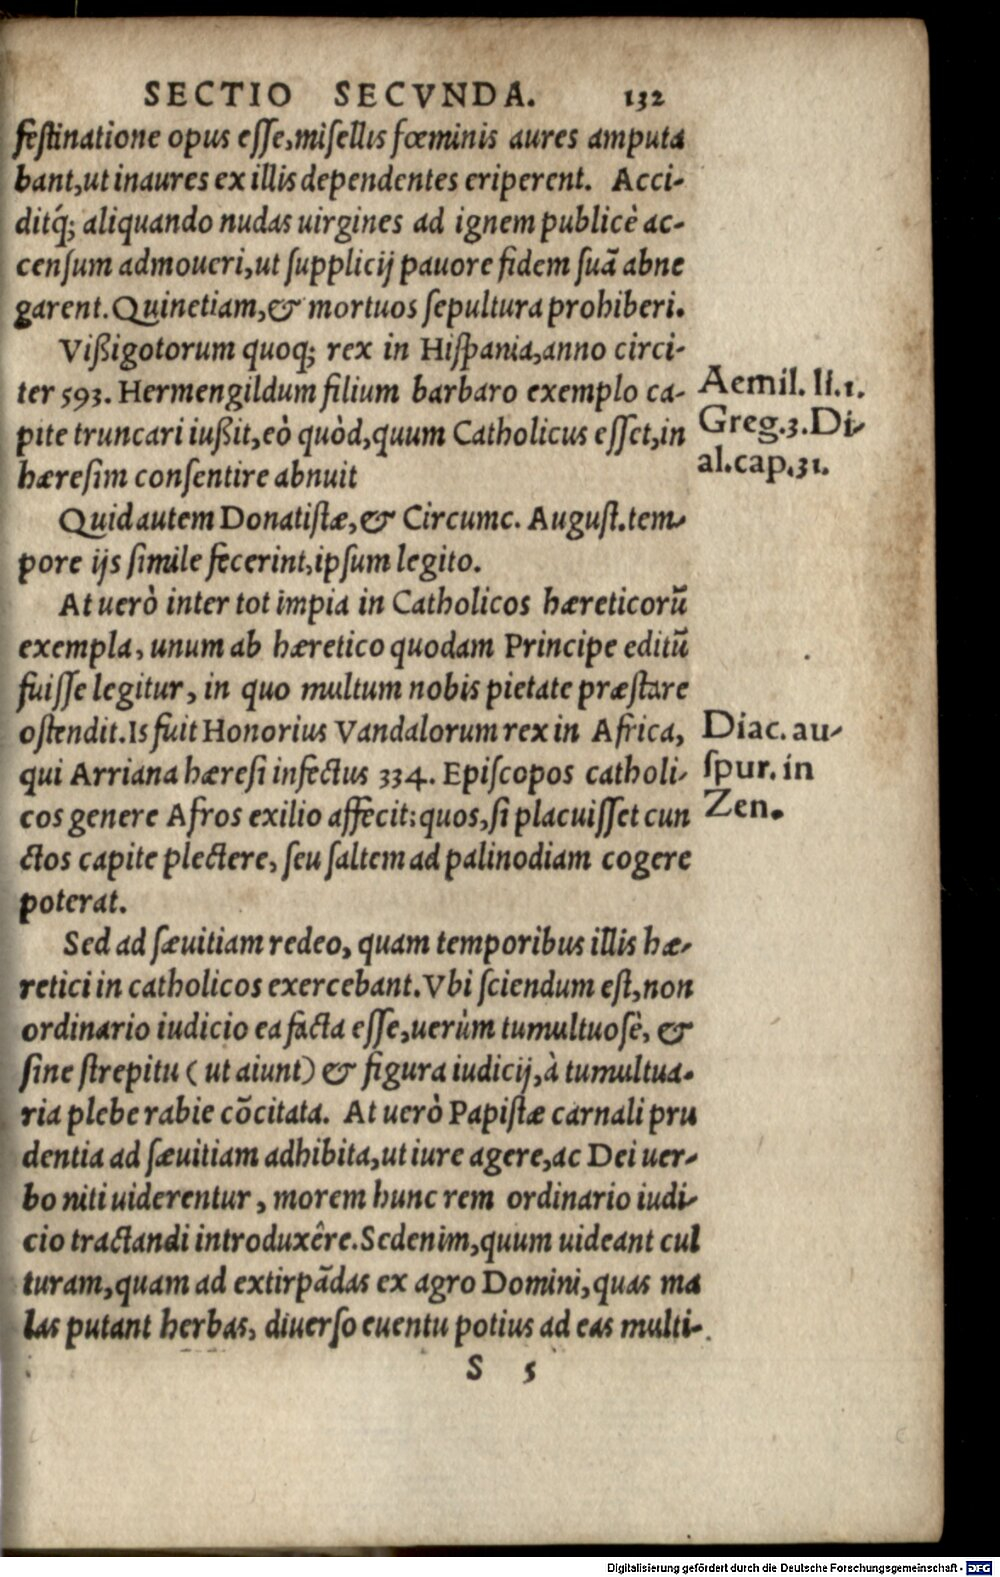 SECTIO SECVNDA. 132
festinatione opus esse, misellis fœminis aures amputa
bant, ut inaures ex illis dependentes eriperent. Acci-
ditq́; aliquando nudas uirgines ad ignem publicè ac-
censum admoueri, ut supplicij pauore fidem suā abne
garent. Quinetiam, & mortuos sepultura prohiberi.
Vißigotorum quoq; rex in Hispania, anno circi-
ter 593. Hermengildum filium barbaro exemplo ca-
pite truncari iußit, eò quòd, quum Catholicus esset, in
hæresim consentire abnuit
Aemil. li.1.
Greg.3.Di-
al.cap.31.
Quid autem Donatistæ, & Circumc. August. tem-
pore ijs simile fecerint, ipsum legito.
At uerò inter tot impia in Catholicos hæreticorū
exempla, unum ab hæretico quodam Principe editū
fuisse legitur, in quo multum nobis pietate præstare
ostendit. Is fuit Honorius Vandalorum rex in Africa,
qui Arriana hæresi infectus 334. Episcopos catholi-
cos genere Afros exilio affecit: quos, si placuisset cun
ctos capite plectere, seu saltem ad palinodiam cogere
poterat.
Diac. au-
spur. in
Zen.
Sed ad sæuitiam redeo, quam temporibus illis hæ-
retici in catholicos exercebant. Vbi sciendum est, non
ordinario iudicio ea facta esse, uerùm tumultuosè, &
sine strepitu ( ut aiunt) & figura iudicij, à tumultua-
ria plebe rabie cōcitata. At uerò Papistæ carnali pru
dentia ad sæuitiam adhibita, ut iure agere, ac Dei uer-
bo niti uiderentur, morem hunc rem ordinario iudi-
cio tractandi introduxêre. Sedenim, quum uideant cul
turam, quam ad extirpādas ex agro Domini, quas ma
las putant herbas, diuerso euentu potius ad eas multi-
S 5
Digitalisierung gefördert durch die Deutsche Forschungsgemeinschaft - DFG